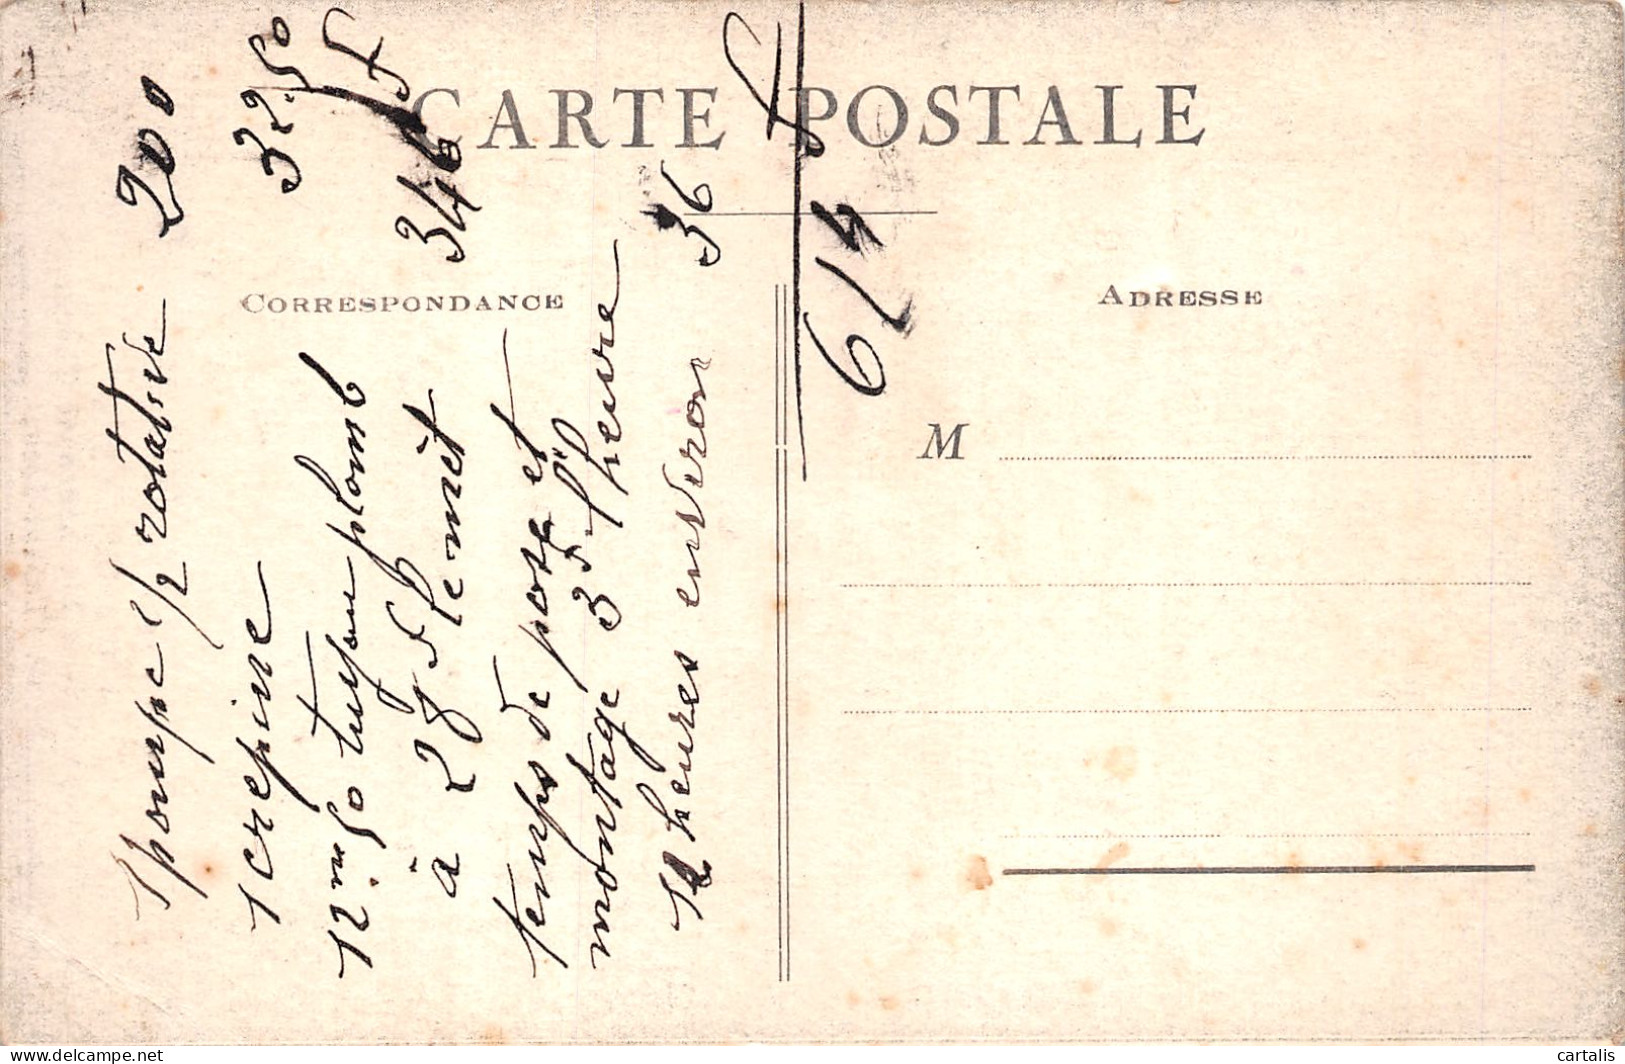 CARTE POSTALE
CORRESPONDANCE
ADRESSE
M
1 pompe 1/2 rotative 200
1 crepine 32.50
12m.50 tuyau plomb
à 28 F le mèt 346
temps de pose et
montage 3F l'heure
12 heures environ 36
614
cartalis